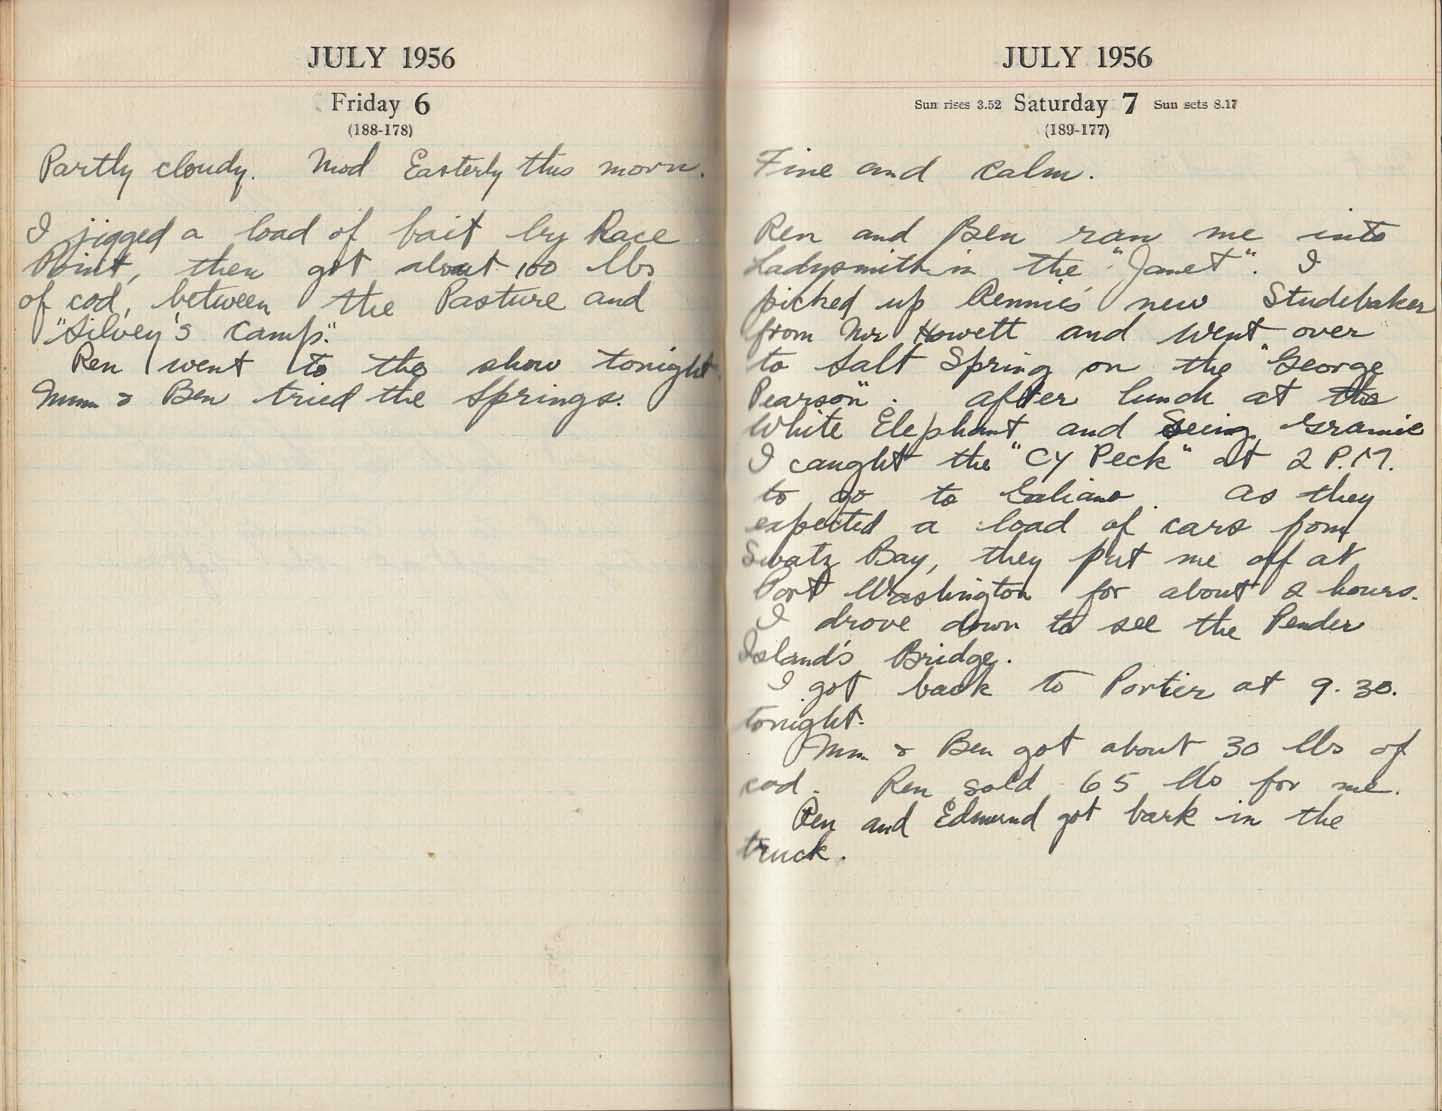 JULY 1956
Friday 6
(188-178)
Partly cloudy. Mod Easterly this morn.
I jigged a load of bait by Race
Point, then got about 100 lbs
of cod, between the Pasture and
"Silvey's camp".
Ren went to the show tonight.
Mum & Ben tried the Springs.
JULY 1956
Sun rises 3.52 Saturday 7 Sun sets 8.17
(189-177)
Fine and calm.
Ren and Ben ran me into
Ladysmith in the "Janet". I
picked up Rennie's new Studebaker
from Mr Howett and went over
to Salt Spring on the "George
Pearson". after lunch at the
White Elephant, and Seeing Grannie
I caught the "CY Peck" at 2 P.M.
to go to Galiano. as they
expected a load of cars from
Swatz Bay, they put me off at
Port Washington for about 2 hours.
I drove down to see the Pender
Island's Bridge.
I got back to Porlier at 9.30.
tonight.
Mum & Ben got about 30 lbs of
cod. Ren sold 65 lbs for me.
Ren and Edmund got bark in the
truck.